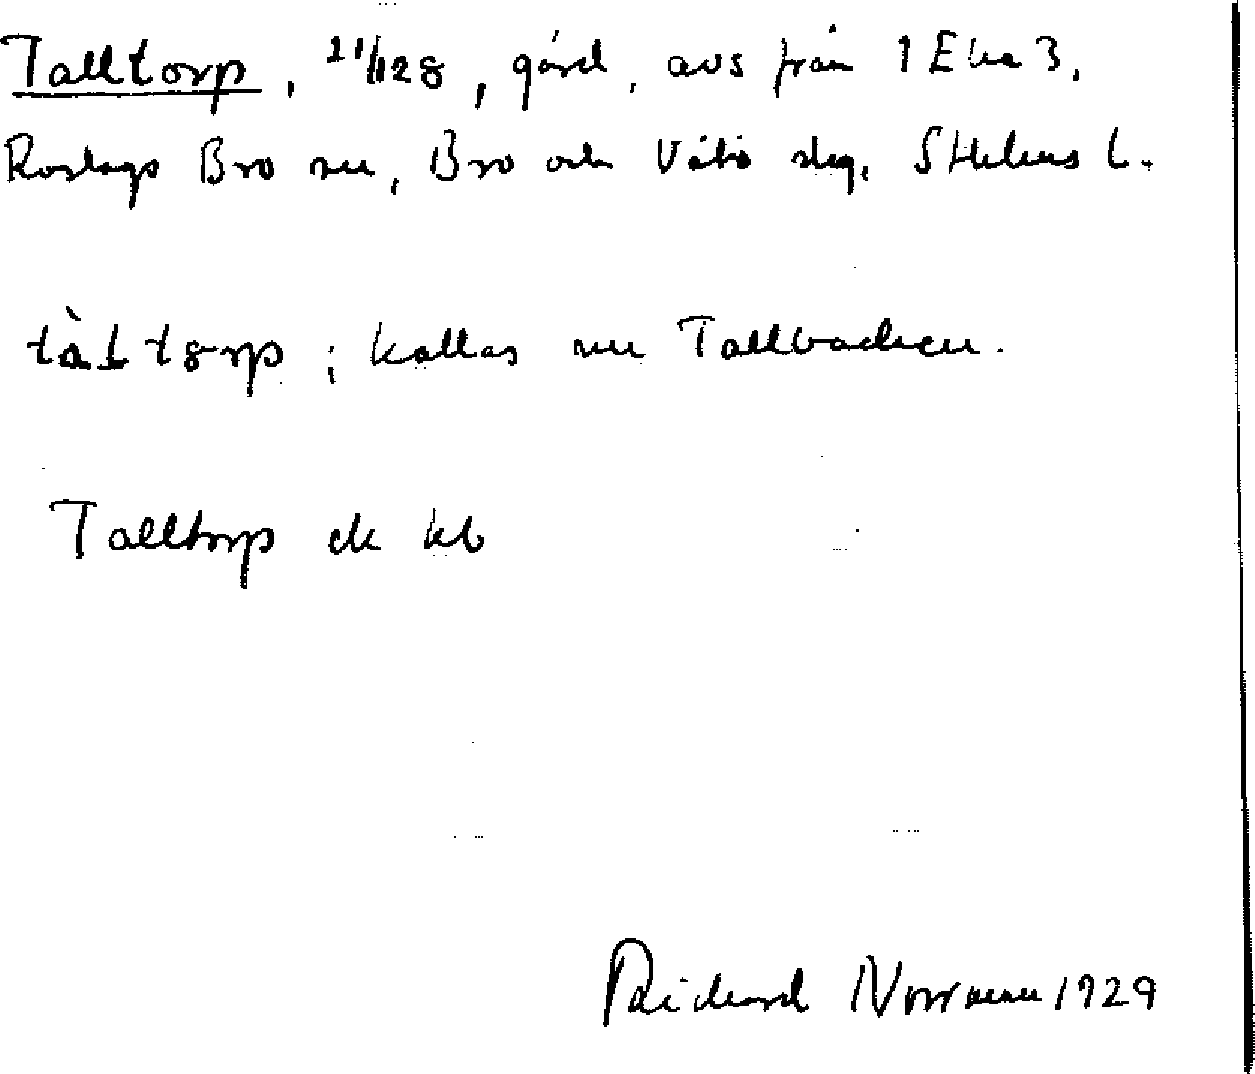 Talltorp, 21/128, gård, avs från 1 Eka 3,
Roslags Bro sn, Bro och Vätö slg, Sthlms L.
tàLtorp; kallas nu Tallbacken.
Talltorp ek kb
Richard Norrman 1929